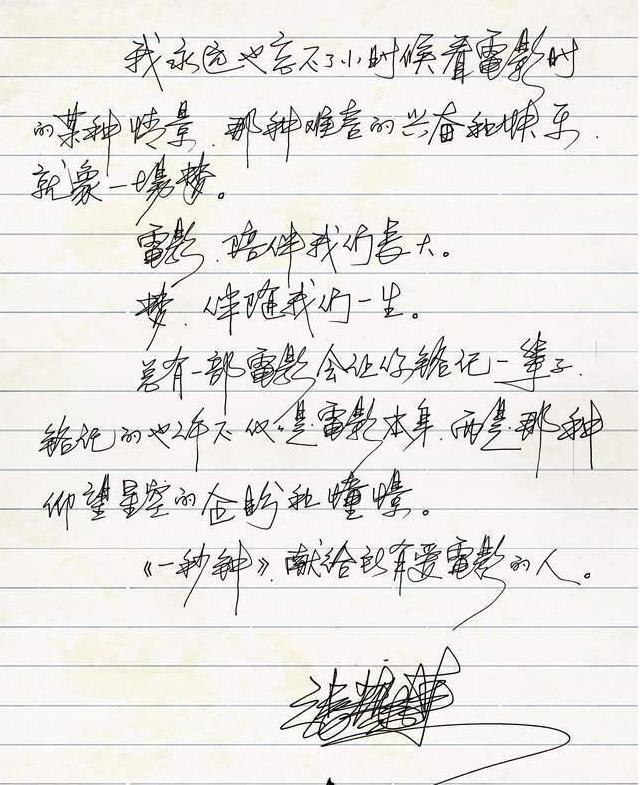 我永远也忘不了小时候看電影时
的某种情景,那种难言的兴奋和快乐,
就象一場梦。
電影,陪伴我们長大。
梦,伴随我们一生。
总有一部電影会让你铭记一辈子,
铭记的也许不仅是電影本身,而是那种
仰望星空的企盼和憧憬。
《一秒钟》,献给所有爱電影的人。